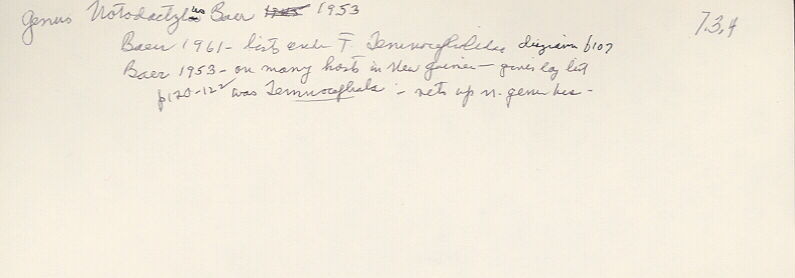 Genus Notodactylus Baer 1953 7.3.4
Baer 1961 - list under F. Temnocephalidae diagram p107
Baer 1953 - on many hosts in New Guinea - gives long list
p120-122 was Temnocephala - sets up n. genus here -